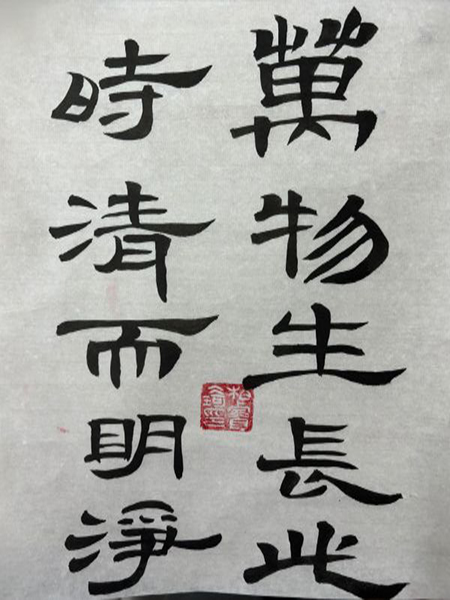 萬物生長此
時清而明淨